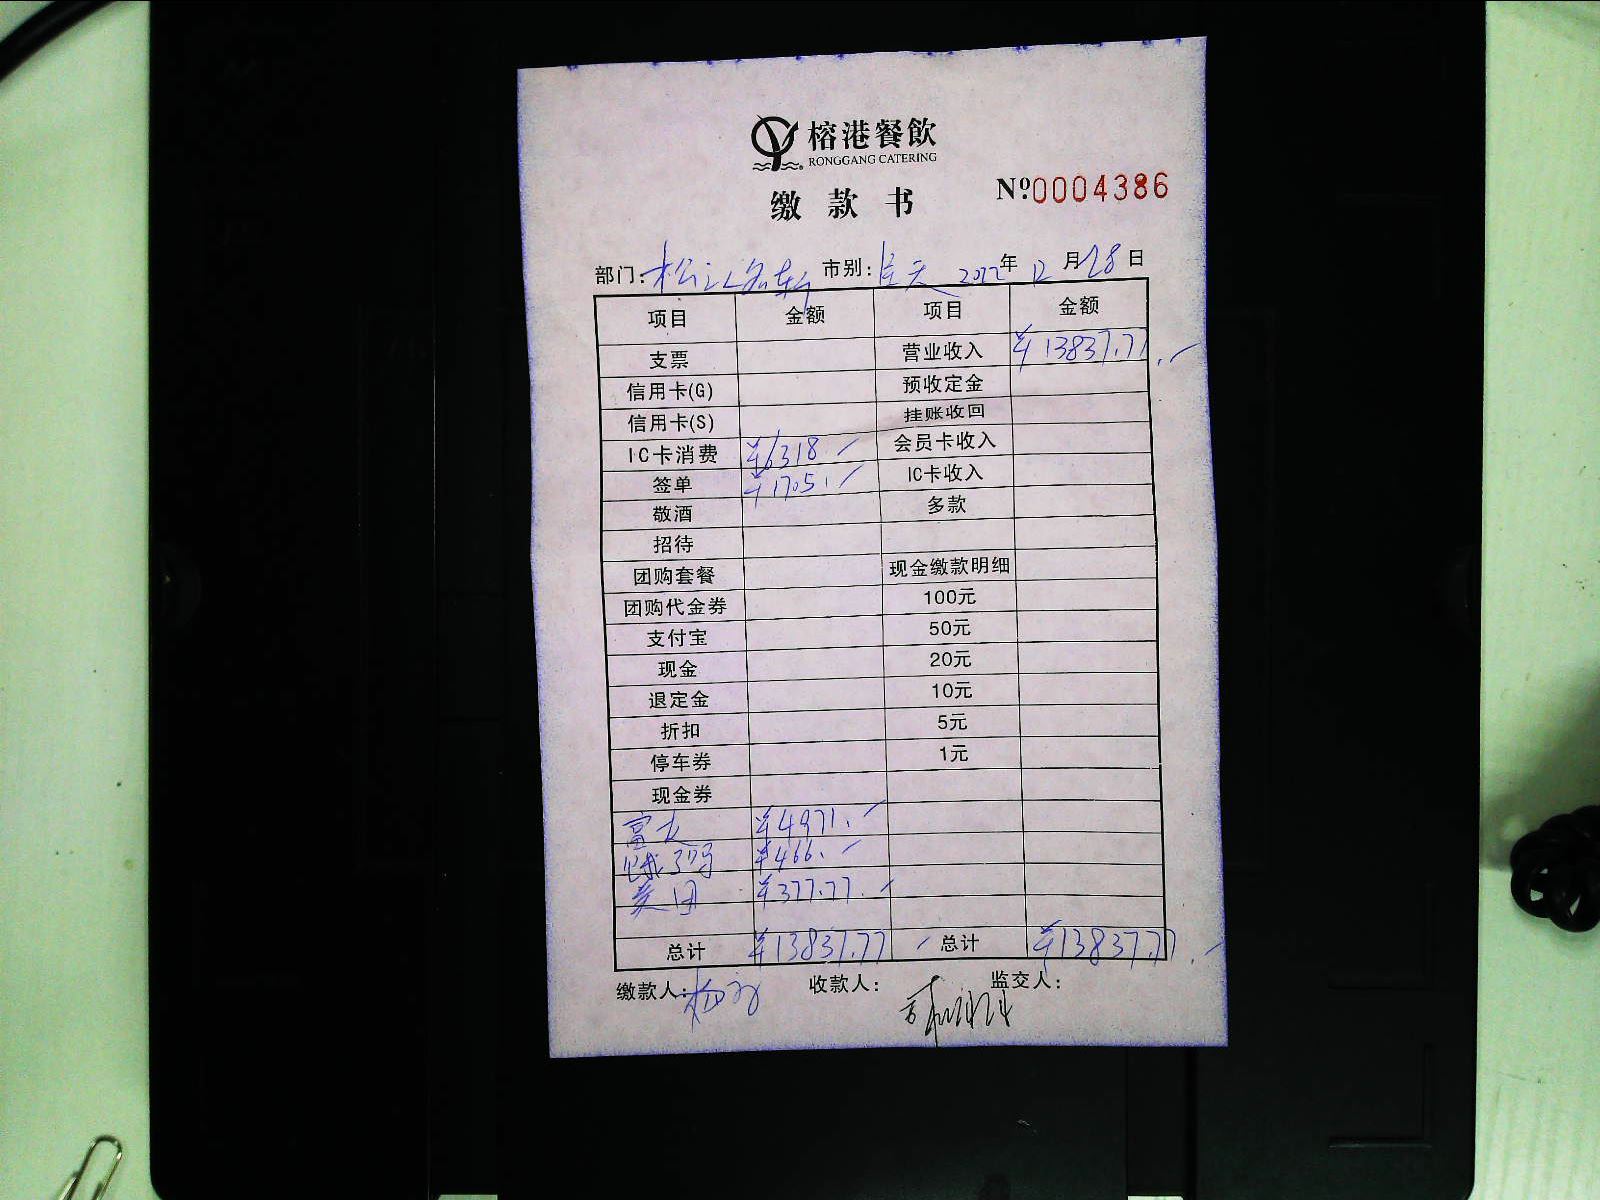 榕港餐飲
RONGGANG CATERING
缴款书
Nº.0004386
部门: 松江名轩 市别: 全天 2022年12月28日
项目 金额 项目 金额
支票 营业收入 ¥13837.77
信用卡(G) 预收定金
信用卡(S) 挂账收回
IC卡消费 ¥6318 会员卡收入
签单 ¥1705. IC卡收入
敬酒 多款
招待
团购套餐 现金缴款明细
团购代金券 100元
支付宝 50元
现金 20元
退定金 10元
折扣 5元
停车券 1元
现金券
富友 ¥4971.
饿了吗 ¥466.
美团 ¥377.77.
总计 ¥13837.77 总计 ¥13837.77.
缴款人: 杨 收款人: 监交人: